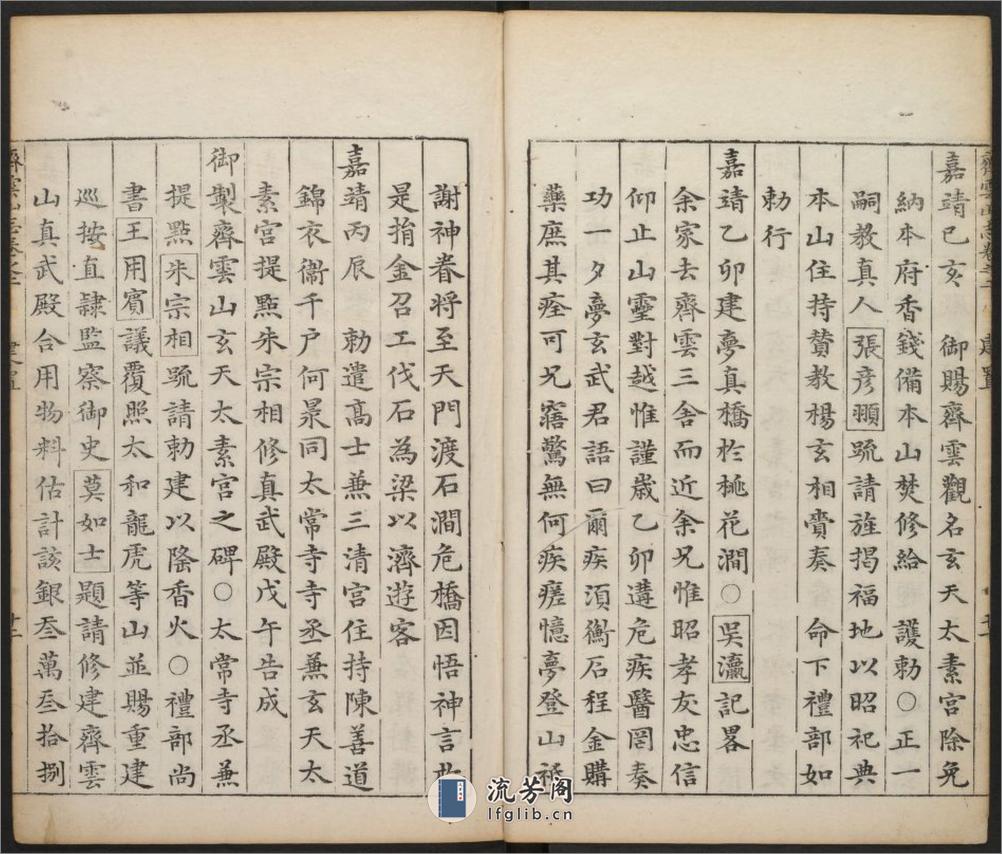 嘉靖己亥　御賜齊雲觀名玄天太素宮除免
納本府香錢備本山焚修給　護勅○正一
嗣教真人張彥頨䟽請旌揭福地以昭祀典
本山住持贊教楊玄相賫奏　命下禮部如
勅行
嘉靖乙卯建夢真橋於桃花澗○吳瀛記畧
余家去齊雲三舍而近余兄惟昭孝友忠信
仰止山靈對越惟謹歲乙卯遘危疾醫罔奏
功一夕夢玄武君語曰爾疾須衡石程金購
藥庶其痊可兄寤驚無何疾瘥憶夢登山祗
謝神眷將至天門渡石澗危橋因悟神言於
是捐金召工伐石為梁以濟遊客
嘉靖丙辰　勅遣高士兼三清宮住持陳善道
錦衣衞千户何景同太常寺寺丞兼玄天太
素宮提點朱宗相修真武殿戊午告成
御製齊雲山玄天太素宮之碑○太常寺丞兼
提點朱宗相䟽請勅建以隆香火○禮部尚
書王用賓議覆照太和龍虎等山並賜重建
巡按直隸監察御史莫如士題請修建齊雲
山真武殿合用物料估計該銀叁萬叁拾捌
齊雲山志卷之二
建置
流芳阁
lfglib.cn